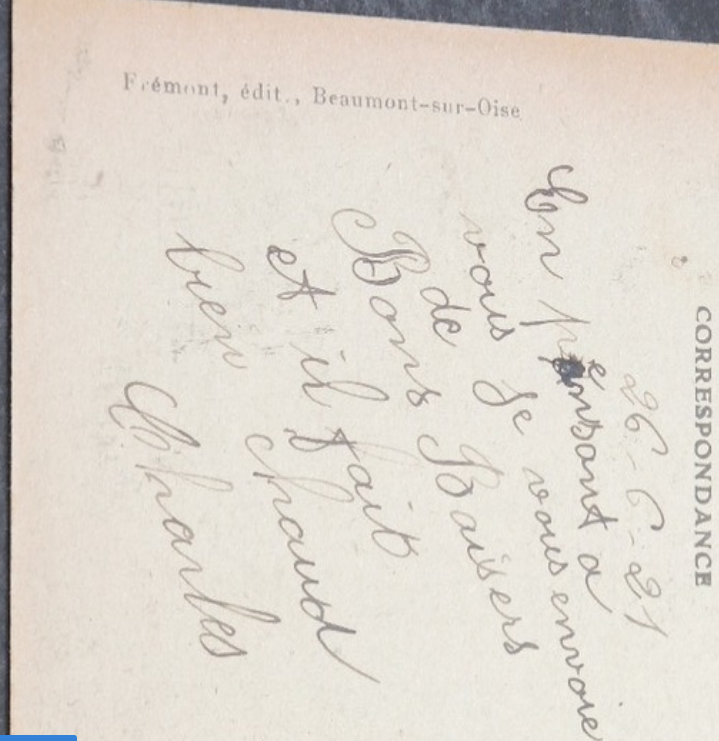 CORRESPONDANCE
26-6-21
En pensant a
vous je vous envoie
de
Bons Baisers
et il fait
bien chaud
Charles
Frémont, édit., Beaumont-sur-Oise